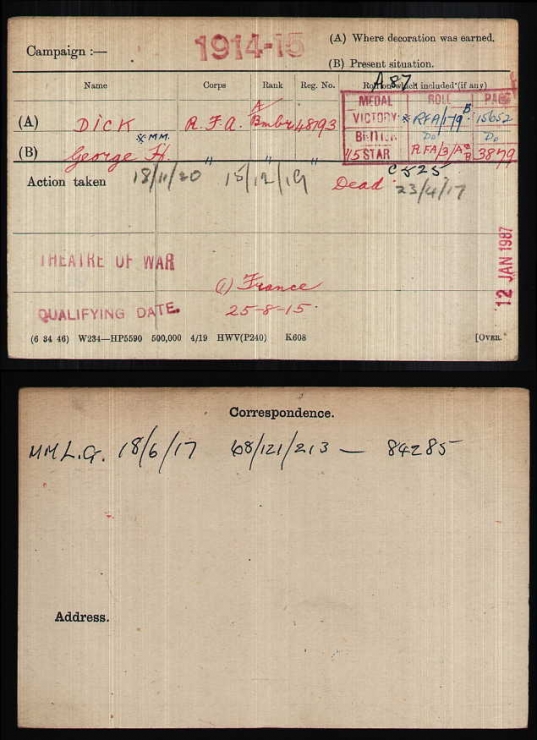 Campaign :— 1914-15 (A) Where decoration was earned.
(B) Present situation.
Name Corps Rank Reg. No. Roll on which included (if any)
A 87
MEDAL ROLL PAGE
(A) DICK R.F.A. A/Bmbr 48793 VICTORY * RFA/179 B 15652
* M.M. BRITISH Do Do
(B) George H. " " " 15 STAR R.FA/3/A 3879
Action taken 18/11/20 15/12/19 Dead C 525
23/4/17
THEATRE OF WAR
(1) France
QUALIFYING DATE. 25-8-15.
12 JAN 1987
(6 34 46) W234—HP5590 500,000 4/19 HWV(P240) K608 [Over.
Correspondence.
MM L.G. 18/6/17 68/121/213 — 84285
Address.